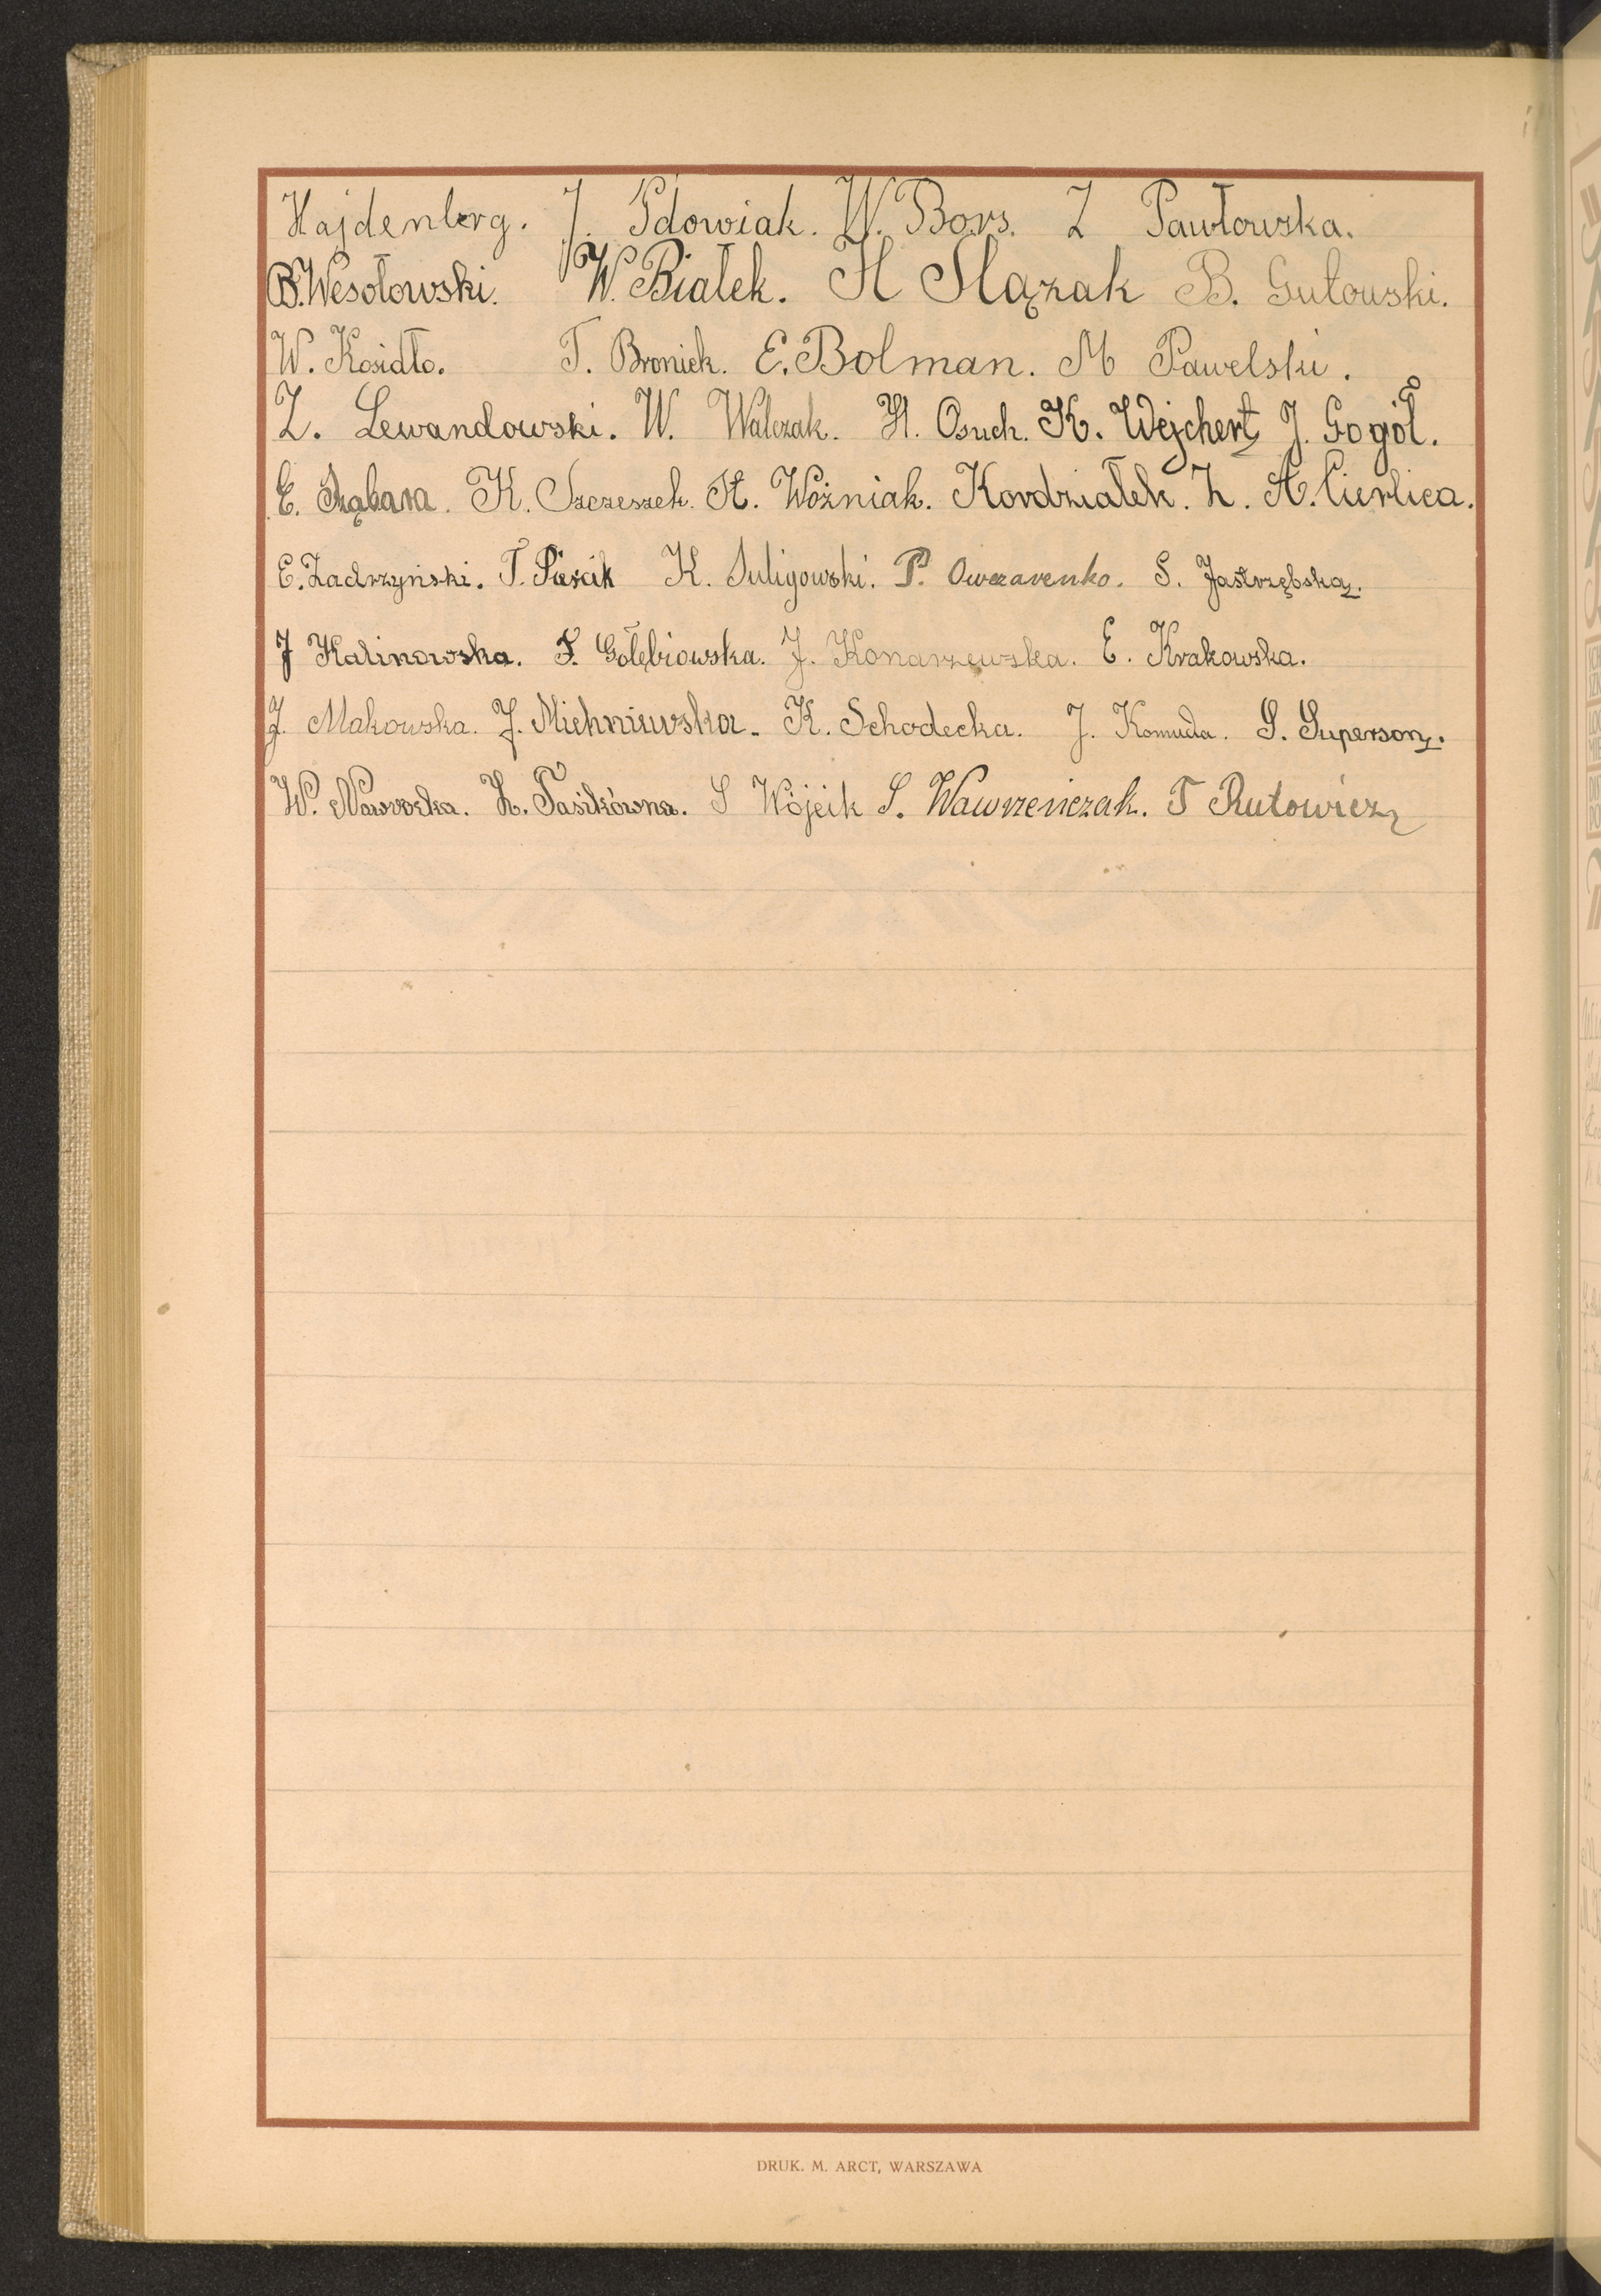 Hajdenberg. J. Pdowiak. W. Bors. Z Pawłowska.
B. Wesołowski. W. Białek. H Slązak B. Gutowski.
W. Kosidło. T. Broniek. E. Bolman. M Pawelski.
Z. Lewandowski. W. Walczak. H. Osuch. K. Wejchert J. Gogół.
E. K. Szczeszek. St. Woźniak. Kordziałek. Z. A. Cierlica.
E. Zadrzyński. T. Piasik K. Suligowski. P. Owczarenko. S. Jastrzębska.
J Kalinowska. F. Gołębiowska. J. Konarzewska. E. Krakowska.
J. Makowska. J. Michniewska. K. Schodecka. J. Komuda. S. Superson.
W. Nawrocka. H. Tasikówna. S Wójcik S. Wawrzeńczak. T Rutowicz
DRUK. M. ARCT, WARSZAWA